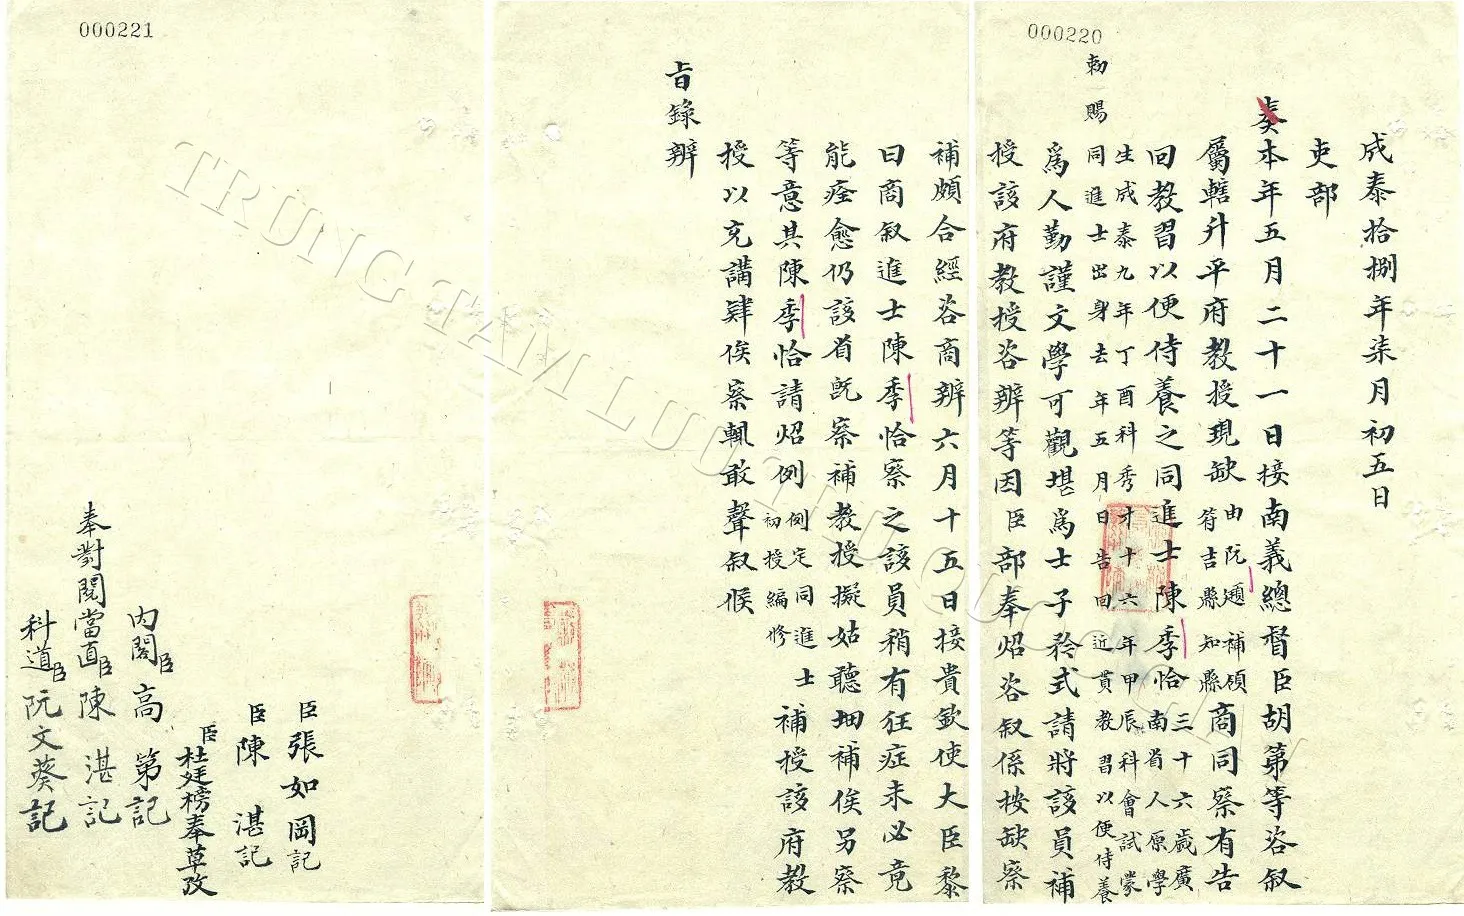 000220
成泰拾捌年柒月初五日
吏部
奏本年五月二十一日接南義總督臣胡第等咨叙
屬轄升平府教授現缺由阮補領符吉縣知縣商同察有告
回教習以便侍養之同進士陳季恰三十六歲廣南省人原學
生成泰九年丁酉科秀才十六年甲辰科會試蒙
勅賜同進士出身去年五月日告回近貫教習以便侍養
爲人勤謹文學可觀堪爲士子矜式請將該員補
授該府教授咨辨等因臣部奉炤咨叙係按缺察
補頗合經咨商辨六月十五日接貴欽使大臣黎
曰商叙進士陳季恰察之該員稍有狂症未必竟
能痊愈仍該省旣察補教授擬姑聽補俟另察
等意其陳季恰請炤例例定同進士初授編修補授該府教
授以充講肄俟察輒敢聲叙候
旨錄辨
000221
臣張如岡記
臣陳湛記
臣杜廷榜奉草攷
內閣臣高第記
奉對閱當直臣陳湛記
科道臣阮文葵記
TRUNG TAM LUU TRU QUOC GIA